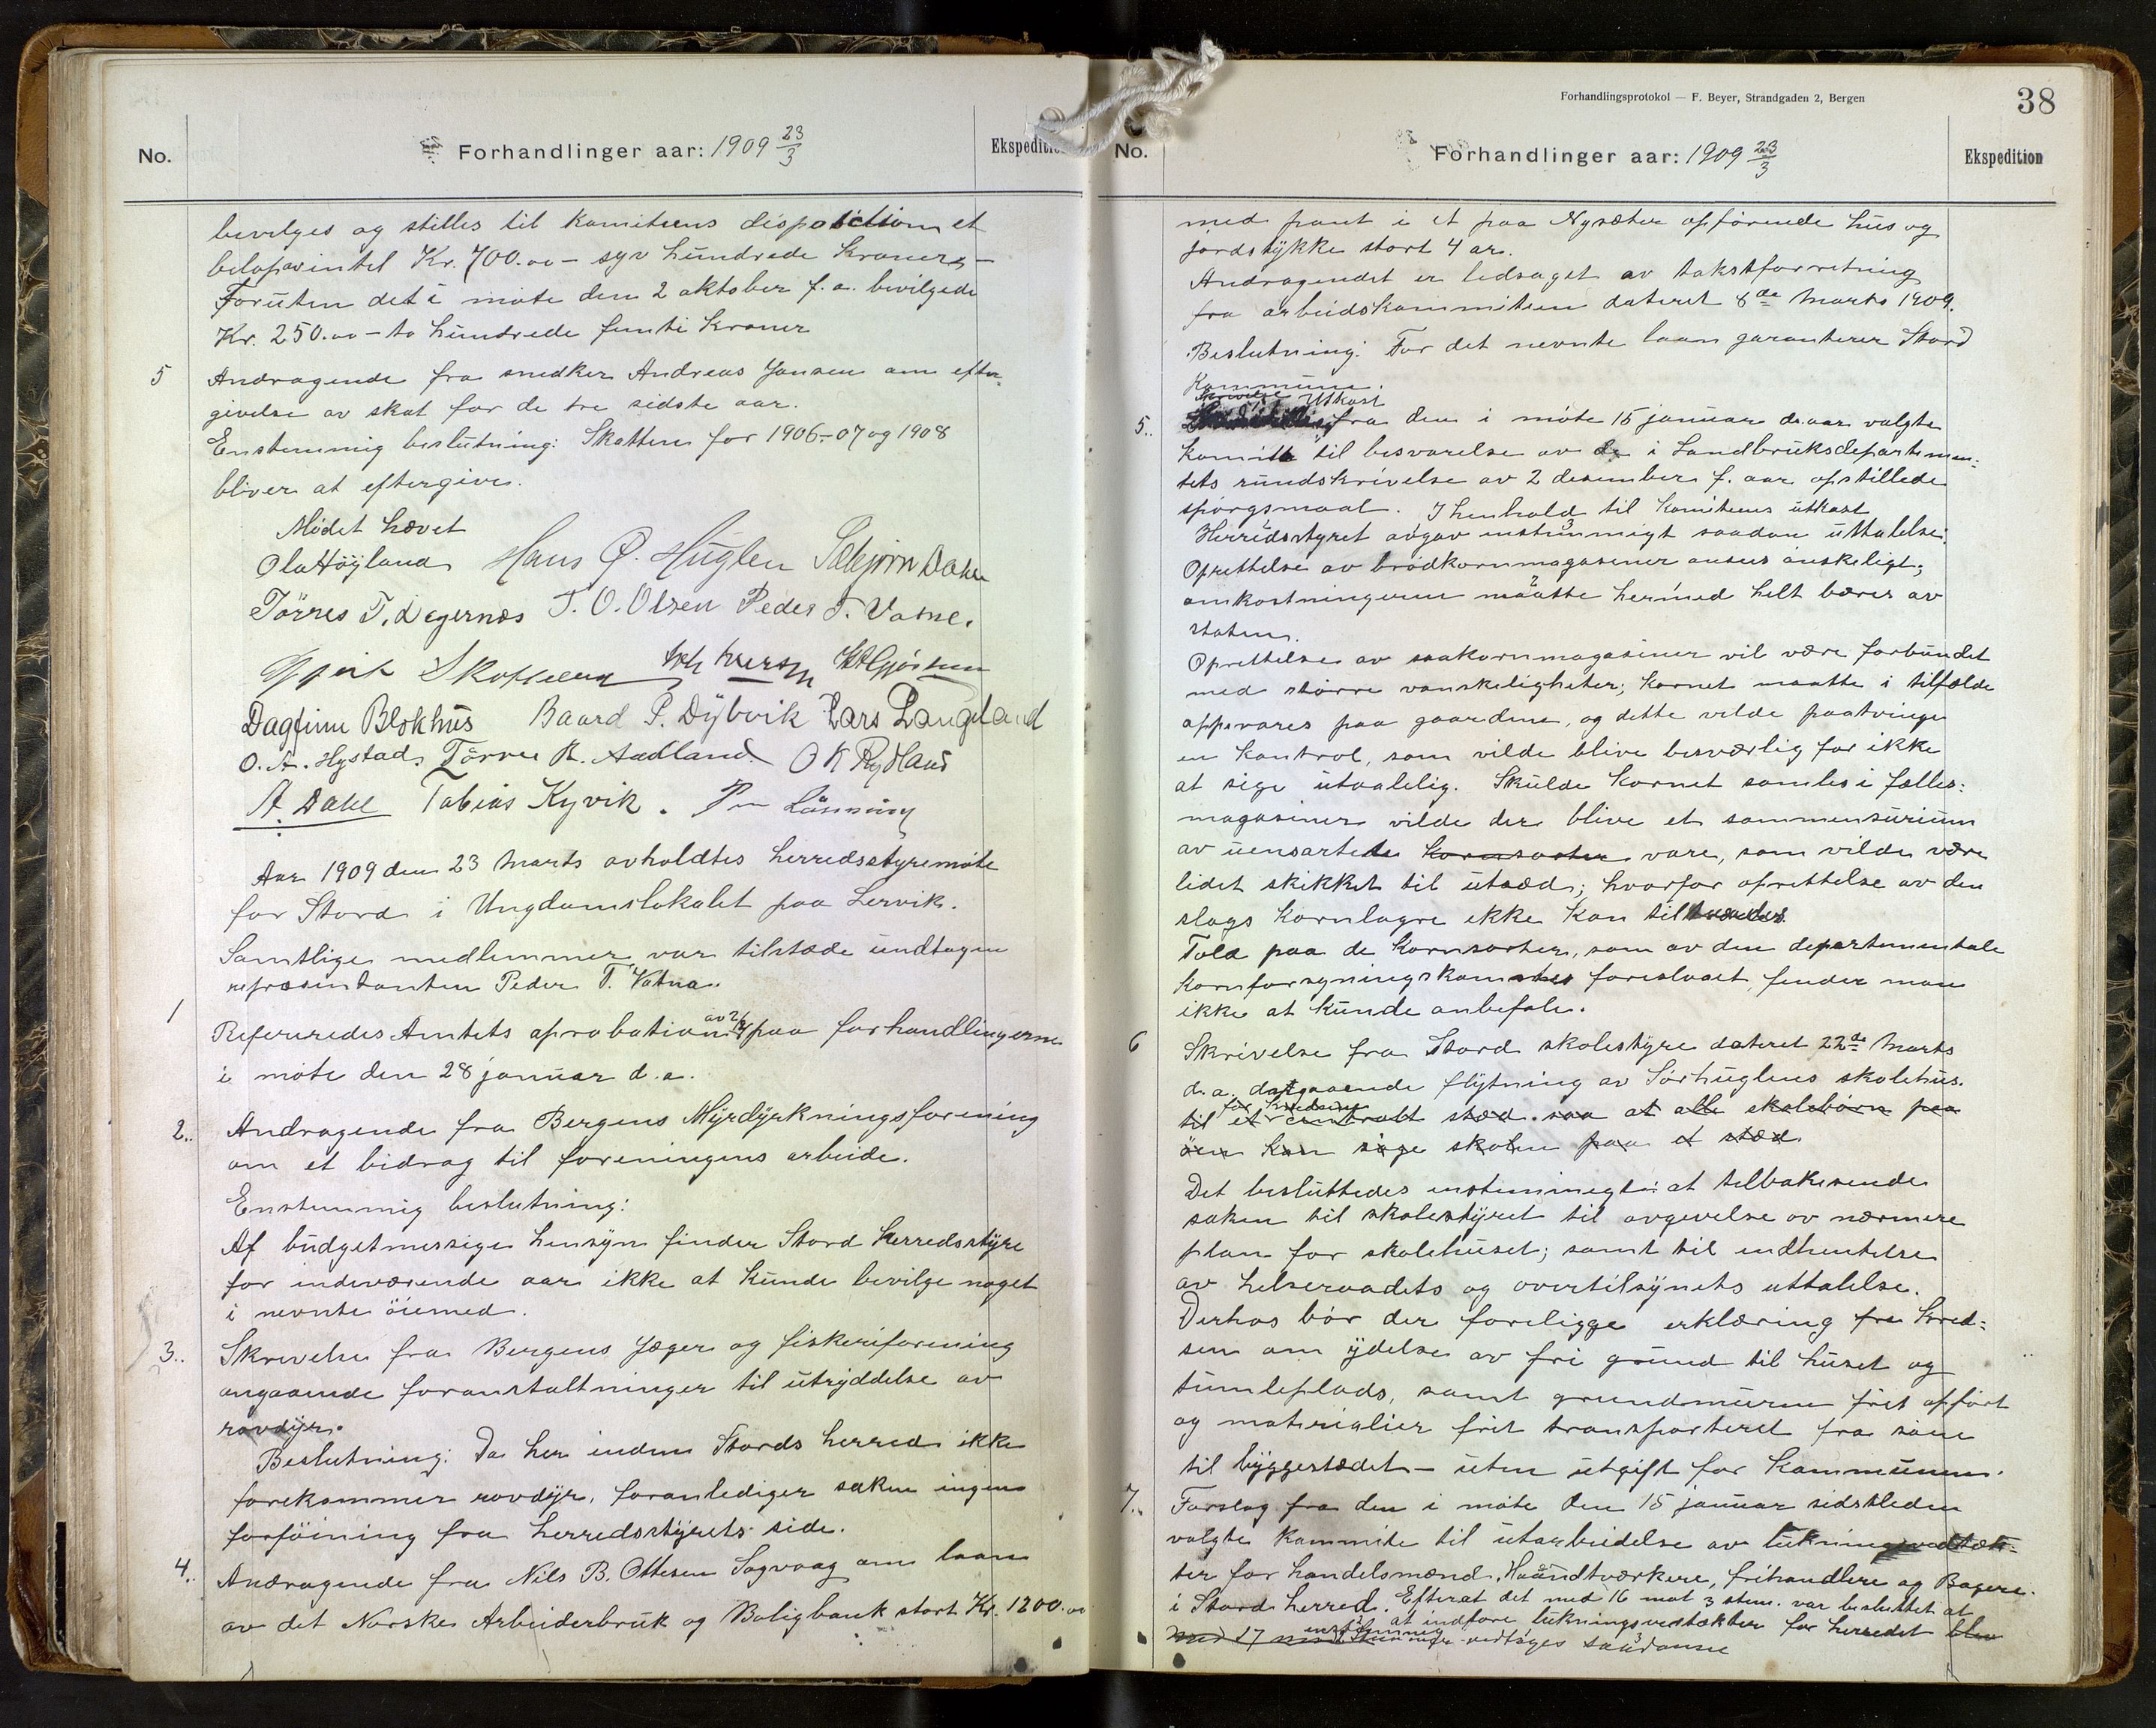 No.
Forhandlinger aar: 1909 23/3
bevilges og stilles til komiteens disposition et
beløp intil Kr. 700.00 – syv hundrede Kroner –
Foruten det i møte den 2 oktober f.a. bevilgede
Kr. 250.00 – to hundrede femti Kroner
5 Andragende fra snedker Andreas Jansen om efter-
givelse av skat for de tre sidste aar.
Enstemmig beslutning: Skatten for 1906-07 og 1908
bliver at eftergive.
Mødet hævet
Ola Höyland Hans Q. Huglen Sæbjørn Dahle
Törres T. Degernæs T. O. Olsen Peder T. Vatne.
Dagfinn Blokhus Baard P. Dybvik Lars Langeland
O. A. Hystad. Törres R. Aadland. O K Rydland
A. Dahl Tobias Kyvik. Per Lönning
Aar 1909 den 23 Marts avholdtes herredsstyremøte
for Stord i Ungdomslokalet paa Lervik.
Samtlige medlemmer var tilstæde undtagen
repræsentanten Peder T. Vatna.
1 Refereredes Amtets aprobation av 2/3 paa forhandlingerne
i møte den 28 januar d.a.
2.. Andragende fra Bergens Myrdyrkningsforening
om et bidrag til foreningens arbeide.
Enstemmig beslutning:
Af budgetmessige hensyn finder Stord Herredsstyre
for indeværende aar ikke at kunde bevilge noget
i nevnte öiemed.
3.. Skrivelse fra Bergens Jæger og fiskeriforening
angaaende foranstaltninger til utryddelse av
rovdyr.
Beslutning: Da her inden Stords herred ikke
forekommer rovdyr, foranlediger saken ingen
forföining fra herredsstyrets side.
4.. Andragende fra Nils B. Ottesen Sagvaag om laan
av det Norske Arbeiderbruk og Boligbank stort Kr. 1200.00
Forhandlingsprotokol — F. Beyer, Strandgaden 2, Bergen
38
No.
Forhandlinger aar: 1909 23/3
Ekspedition
med pant i et paa Nysæter opførende hus og
jordstykke stort 4 ar.
Andragendet er ledsaget av takstforretning
fra arbeidskommiteen dateret 8de Marts 1909.
Beslutning: For det nevnte laan garanterer Stord
Kommune.
Skrivelse Utkast
5.. fra den i möte 15 januar d. aar valgte
komite til besvarelse av de i Landbruksdepartemen-
tets rundskrivelse av 2 desember f. aar opstillede
spörgsmaal. I henhold til komiteens utkast
Herredsstyret avgav enstemmigt saadan uttalelse:
Oprettelse av brödkornmagasiner ansees önskeligt;
omkostningerne maatte hermed helt bæres av
staten.
Oprettelse av saakornmagasiner vil være forbundet
med större vanskeligheter; kornet maatte i tilfælde
oppevares paa gaardene, og dette vilde paatvinge
en kontrol, som vilde blive besværlig for ikke
at sige utaalelig. Skulde kornet samles i fælles-
magasiner vilde der blive et sammensurium
av uensartede kornsorter vare, som vilde være
lidet skikket til utsæd; hvorfor oprettelse av den
slags kornlagre ikke kan tilraades.
Told paa de kornsorter, som av den departementale
kornforsyningskomite foreslaaet, finder man
ikke at kunde anbefale.
6 Skrivelse fra Stord skolestyre dateret 22de Marts
d.a. angaaende flytning av Sörhuglens skolehus.
til et for kredsene centralt stæd saa at alle skolebörn paa
öen kan söge skolen paa et stæd.
Det besluttedes enstemmigt: at tilbakesende
saken til skolestyret til avgivelse av nærmere
plan for skolehuset; samt til indhentelse
av helseraadets og overtilsynets uttalelse.
Derhos bör der foreligge erklæring fra kred-
sen om ydelse av fri grund til huset og
tumleplads, samt grundmuren frit opfört
og materialier frit transporteret fra söen
til byggestædet – uten utgift for Kommunen.
7.. Forslag fra den i möte den 15 januar sidstleden
valgte kommite til utarbeidelse av lukningsvedtæk-
ter for handelsmænd, Haandtværkere, frihandlere og Bagere
i Stord herred. Efterat det med 16 mot 3 stem. var besluttet at
at indföre lukningsvedtækter for herredet blev
med 17 mot enstemmig vedtages saadanne